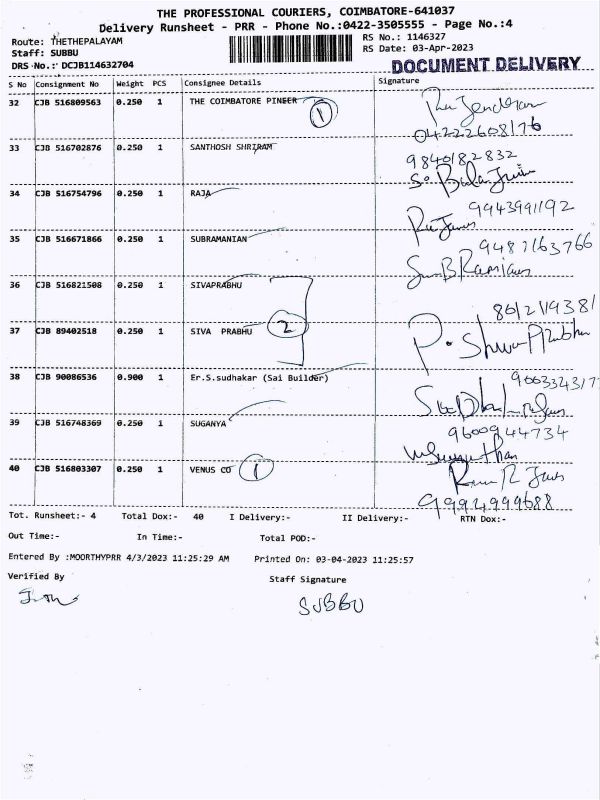 THE PROFESSIONAL COURIERS, COIMBATORE-641037
Delivery Runsheet - PRR - Phone No.:0422-3505555 - Page No.:4
Route: THETHEPALAYAM
RS No.: 1146327
Staff: SUBBU
RS Date: 03-Apr-2023
DRS No.: DCJB114632704
DOCUMENT DELIVERY
S No Consignment No Weight PCS Consignee Details Signature
32 CJB 516809563 0.250 1 THE COIMBATORE PINEER 1 Rajendran
04222608176
33 CJB 516702876 0.250 1 SANTHOSH SHRIRAM 9840182832
34 CJB 516754796 0.250 1 RAJA 9943991192
35 CJB 516671866 0.250 1 SUBRAMANIAN 9487163766
36 CJB 516821508 0.250 1 SIVAPRABHU
37 CJB 89402518 0.250 1 SIVA PRABHU 2
38 CJB 90086536 0.900 1 Er.S.sudhakar (Sai Builder)
39 CJB 516748369 0.250 1 SUGANYA 9600944734
40 CJB 516803307 0.250 1 VENUS CO 1
9994999688
Tot. Runsheet:- 4 Total Dox:- 40 I Delivery:- II Delivery:- RTN Dox:-
Out Time:- In Time:- Total POD:-
Entered By :MOORTHYPRR 4/3/2023 11:25:29 AM Printed On: 03-04-2023 11:25:57
Verified By Staff Signature
SUBBU